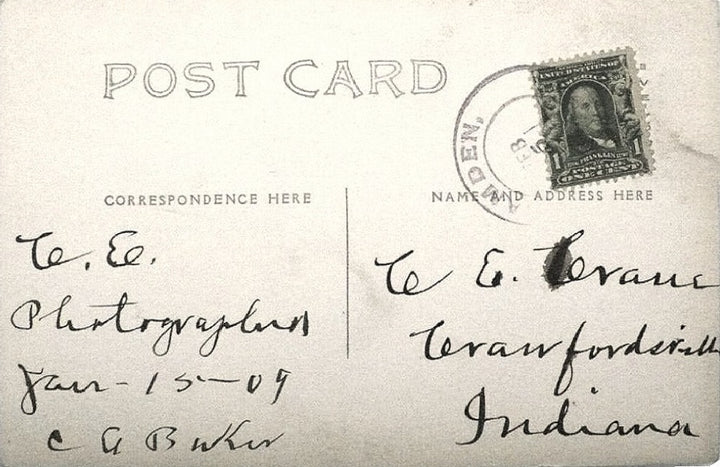 POST CARD
AMDEN,
FEB
UNITED STATES OF
AMERICA
FRANKLIN
1 POSTAGE 1
ONE CENT
CORRESPONDENCE HERE
NAME AND ADDRESS HERE
C. E.
Photographed
Jan - 15 - 09
C A Baker
C E. Crane
Crawfordsville
Indiana